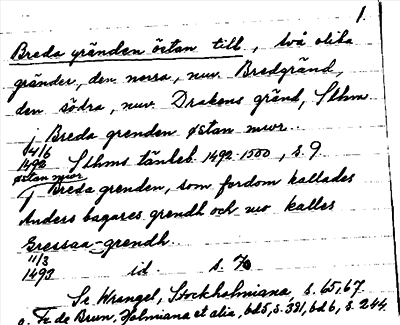 1.
Breda gränden östan till, två olika
gränder, den norra, nuv. Bredgränd,
den södra, nuv. Drakens gränd, Sthm
Breda grenden østan mwr..
14/6
1492 Sthms tänkeb. 1492-1500, s. 9
østan mwr
Breda grenden, som fordom kallades
Anders bagares grendh och nw kalles
Gressaa-grendh.
11/3
1493 id. s.
Se Wrangel, Stockholmiana s. 65, 67.
o. Fr. de Brun, Holmiana et alia, bd 5, s. 381, bd 6, s. 244.